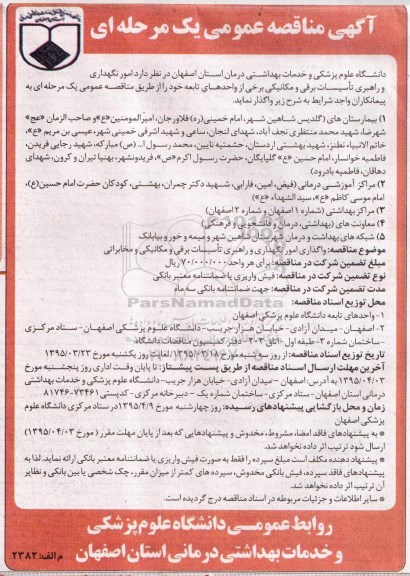 آگهی مناقصه عمومی یک مرحله ای
دانشگاه علوم پزشکی و خدمات بهداشتی درمان استان اصفهان در نظر دارد امور نگهداری
و راهبری تأسیسات برقی و مکانیکی برخی از واحدهای تابعه خود را از طریق مناقصه عمومی یک مرحله ای به
پیمانکاران واجد شرایط به شرح زیر واگذار نماید.
۱) بیمارستان های (گلدیس شاهین شهر، امام خمینی (ره) فلاورجان، امیرالمومنین «ع» و صاحب الزمان «عج»
شهرضا، شهید محمد منتظری نجف آباد، شهدای لنجان، ساعی و شهید اشرفی خمینی شهر، عیسی بن مریم «ع»،
خاتم الانبیاء نطنز، شهید بهشتی اردستان، حشمتیه نایین، محمد رسول ا... (ص) مبارکه، شهید رجایی فریدن،
فاطمیه خوانسار، امام حسین «ع» گلپایگان، حضرت رسول اکرم «ص» فریدونشهر، بهنیا تیران و کرون، شهدای
دهاقان، فاطمیه بادرود)
۲) مراکز آموزشی درمانی (فیض، امین، فارابی، شهید دکتر چمران، بهشتی، کودکان حضرت امام حسین(ع)،
امام موسی کاظم «ع»، سید الشهداء «ع»)
۳) مراکز بهداشتی (شماره ۱ اصفهان و شماره ۲ اصفهان)
۴) معاونت های (بهداشتی، درمان و دانشجویی و فرهنگی)
۵) شبکه های بهداشت و درمان شهرستان شاهین شهر و میمه و خور و بیابانک
موضوع مناقصه: واگذاری امور نگهداری و راهبری تأسیسات برقی و مکانیکی و مخابراتی
مبلغ تضمین شرکت در مناقصه: برای هر واحد ۷۰/۰۰۰/۰۰۰ ریال
نوع تضمین شرکت در مناقصه: فیش واریزی یا ضمانتنامه معتبر بانکی
مدت تضمین شرکت در مناقصه: جهت ضمانتنامه بانکی سه ماه
محل توزیع اسناد مناقصه:
ParsNamadData
۱- واحدهای تابعه دانشگاه علوم پزشکی اصفهان
۲- اصفهان - میدان آزادی - خیابان هزار جریب - دانشگاه علوم پزشکی اصفهان - ستاد مرکزی
- ساختمان شماره ۳- طبقه اول - اتاق ۳۰۳- دفتر کمیسیون مناقصات دانشگاه
تاریخ توزیع اسناد مناقصه: از روز سه شنبه مورخ ۱۳۹۵/۰۳/۱۸ لغایت روز یکشنبه مورخ ۱۳۹۵/۰۳/۲۳
آخرین مهلت ارسال اسناد مناقصه از طریق پست پیشتاز: تا پایان وقت اداری روز پنجشنبه مورخ
۱۳۹۵/۰۴/۰۳ به آدرس: اصفهان - میدان آزادی - خیابان هزار جریب - دانشگاه علوم پزشکی و خدمات بهداشتی
درمانی استان اصفهان - ستاد مرکزی - ساختمان شماره یک - دبیرخانه مرکزی - کدپستی ۷۳۴۶۱-۸۱۷۴۶
زمان و محل بازگشایی پیشنهادهای رسیده: روز چهارشنبه مورخ ۱۳۹۵/۴/۹ در ستاد مرکزی دانشگاه علوم
پزشکی اصفهان
* به پیشنهادهای فاقد امضا، مشروط، مخدوش و پیشنهادهایی که بعد از پایان مهلت مقرر ( مورخ ۱۳۹۵/۰۴/۰۳)
ارسال شود ترتیب اثر داده نخواهد شد.
* پیشنهاد دهنده مکلف است مبلغ سپرده را فقط به صورت فیش واریزی یا ضمانتنامه معتبر بانکی ارائه نماید. لذا به
پیشنهادهای فاقد سپرده، فیش بانکی مخدوش، سپرده های کمتر از میزان مقرر، چک شخصی یا بین بانکی و نظایر
آن ترتیب اثر داده نخواهد شد.
* سایر اطلاعات و جزئیات مربوطه در اسناد مناقصه درج گردیده است.
روابط عمومی دانشگاه علوم پزشکی
و خدمات بهداشتی درمانی استان اصفهان
م الف: ۲۳۸۲